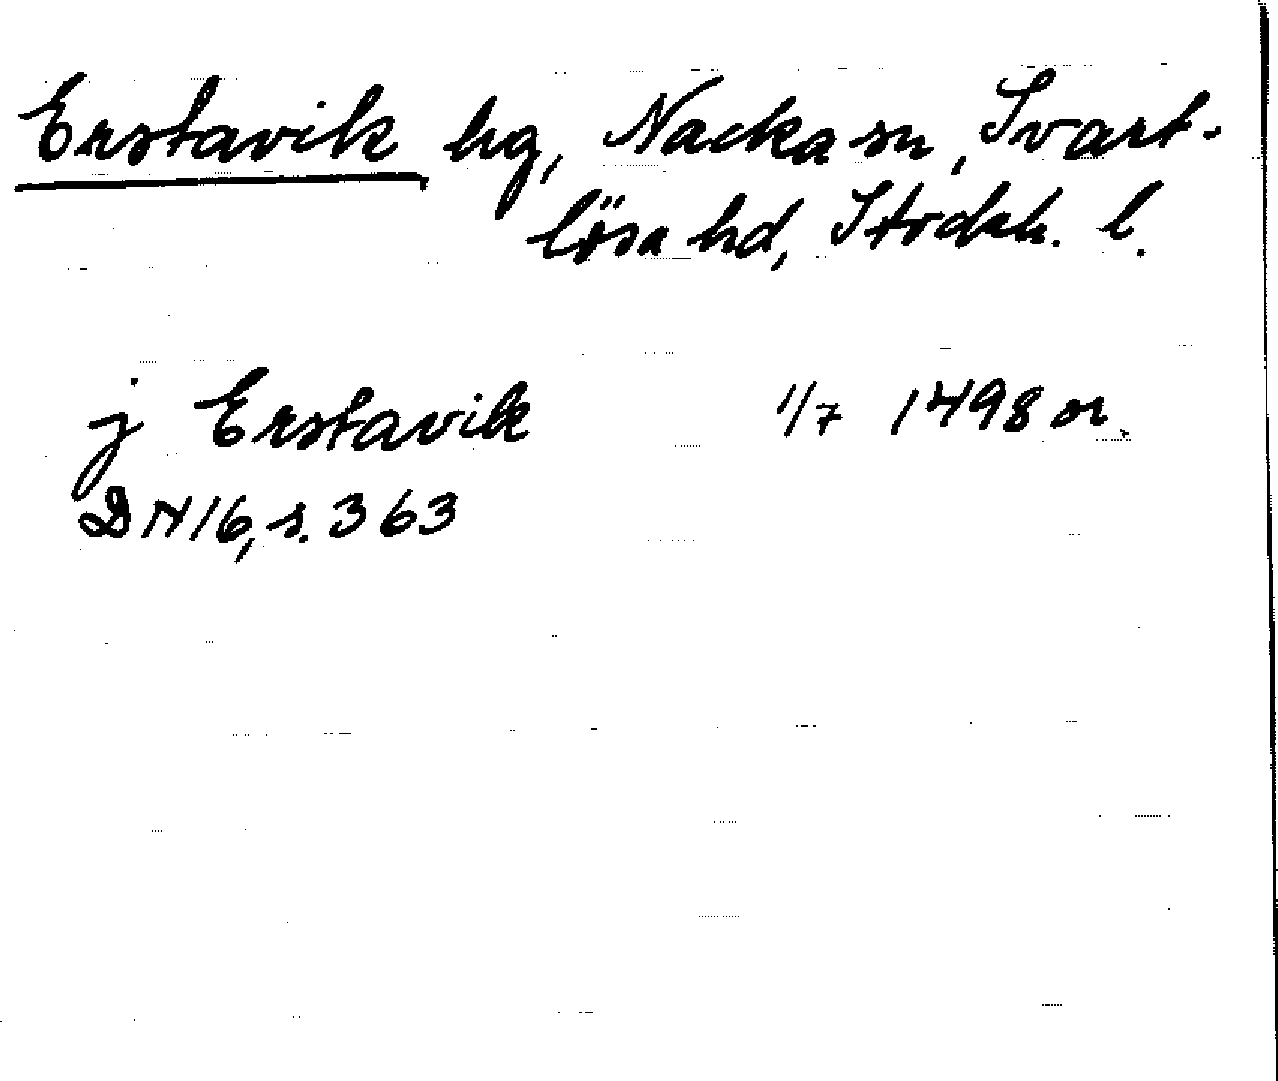 Erstavik hg, Nacka sn, Svart-
lösa hd, Stockh. l.
j Erstavik 1/7 1498 or.
DN 16, s. 363